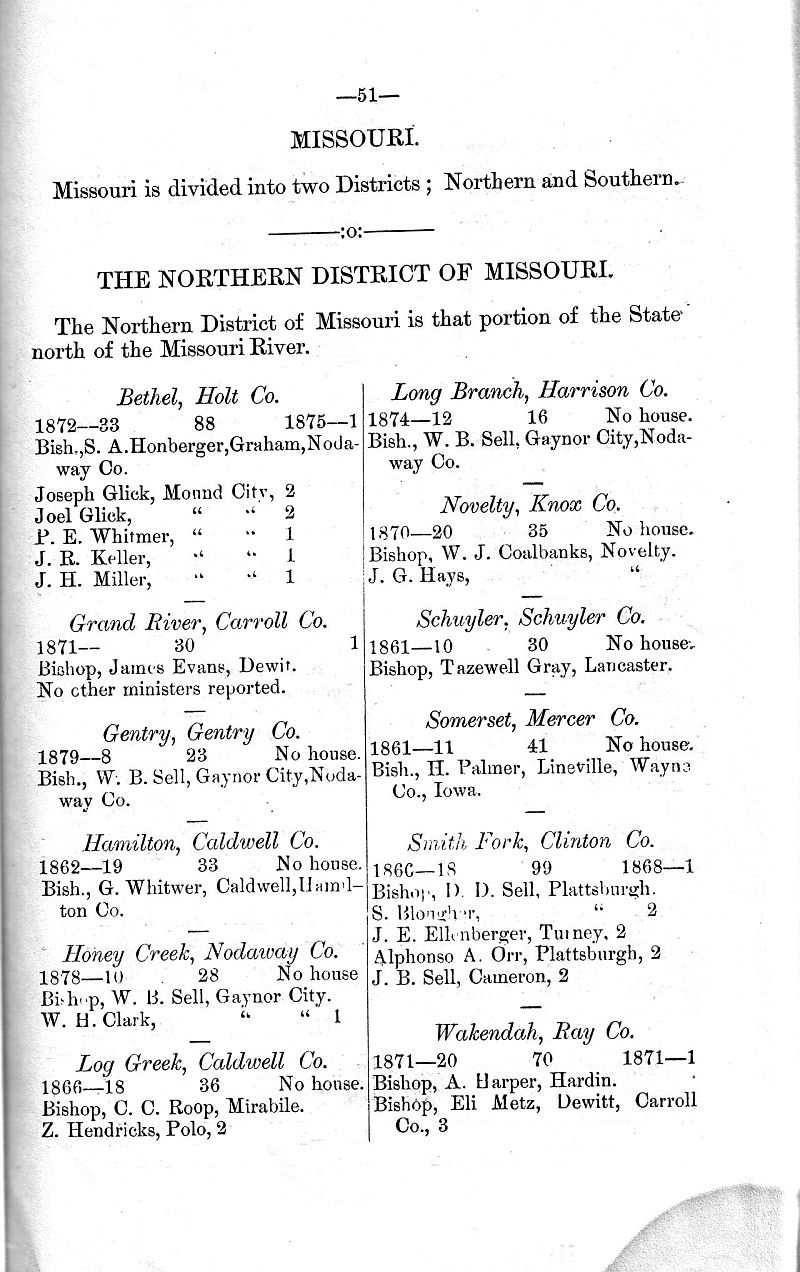 —51—
MISSOURI.
Missouri is divided into two Districts ; Northern and Southern.
:o:
THE NORTHERN DISTRICT OF MISSOURI.
The Northern District of Missouri is that portion of the State
north of the Missouri River.
Bethel, Holt Co.
1872—33 88 1875—1
Bish.,S. A.Honberger,Graham,Noda-
way Co.
Joseph Glick, Mound City, 2
Joel Glick, “ “ 2
P. E. Whitmer, “ “ 1
J. R. Keller, “ “ 1
J. H. Miller, “ “ 1
Grand River, Carroll Co.
1871— 30 1
Bishop, James Evans, Dewit.
No other ministers reported.
Gentry, Gentry Co.
1879—8 23 No house.
Bish., W. B. Sell, Gaynor City,Noda-
way Co.
Hamilton, Caldwell Co.
1862—19 33 No house.
Bish., G. Whitwer, Caldwell,Hamil-
ton Co.
Honey Creek, Nodaway Co.
1878—10 28 No house
Bishop, W. B. Sell, Gaynor City.
W. H. Clark, “ “ 1
Log Greek, Caldwell Co.
1866—18 36 No house.
Bishop, C. C. Roop, Mirabile.
Z. Hendricks, Polo, 2
Long Branch, Harrison Co.
1874—12 16 No house.
Bish., W. B. Sell, Gaynor City,Noda-
way Co.
Novelty, Knox Co.
1870—20 35 No house.
Bishop, W. J. Coalbanks, Novelty.
J. G. Hays, “
Schuyler, Schuyler Co.
1861—10 30 No house.
Bishop, Tazewell Gray, Lancaster.
Somerset, Mercer Co.
1861—11 41 No house.
Bish., H. Palmer, Lineville, Wayne
Co., Iowa.
Smith Fork, Clinton Co.
1860—18 99 1868—1
Bishop, D. D. Sell, Plattsburgh.
S. Blougher, “ 2
J. E. Ellenberger, Turney, 2
Alphonso A. Orr, Plattsburgh, 2
J. B. Sell, Cameron, 2
Wakendah, Ray Co.
1871—20 70 1871—1
Bishop, A. Harper, Hardin.
Bishop, Eli Metz, Dewitt, Carroll
Co., 3